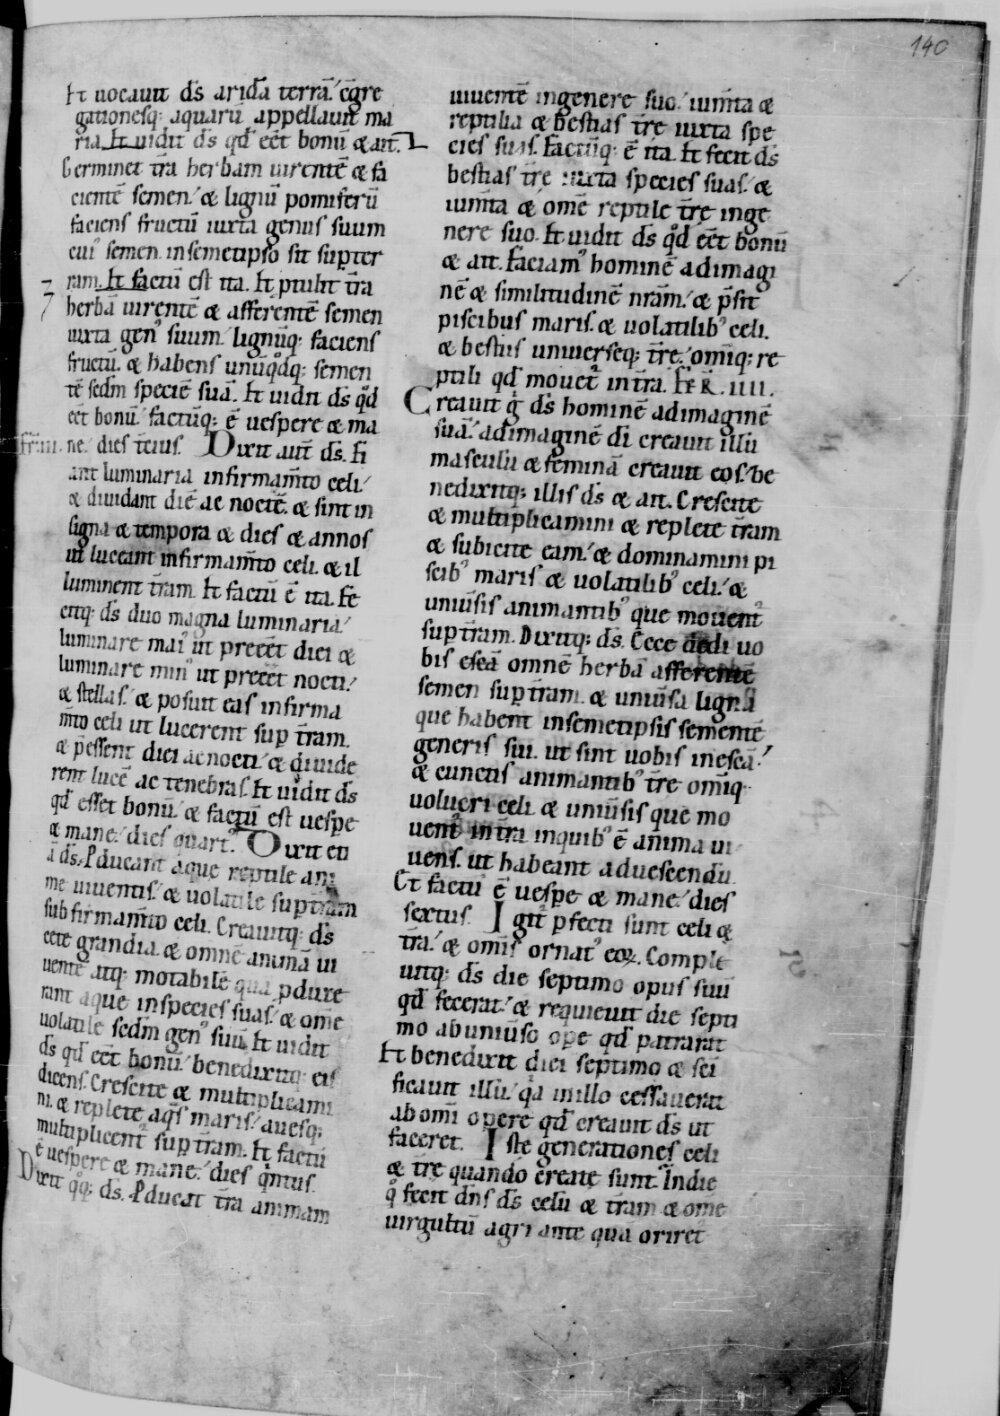 140
Et vocavit d̄s aridā terrā. c̄gre
gationesq; aquarū appellavit ma
ria. Et vidit d̄s qd̄ eēt bonū & ait.
Germinet t̄ra herbam virentē & fa
cientē semen. & lignū pomiferū
faciens fructū iuxta genus suum
cui᷒ semen insemetipso sit sup̱ter
ram. Et factū est ita. Et ꝓtulit t̄ra
herbā virentē & afferentē semen
iuxta gen᷒ suum. lignūq; faciens
fructū. & habens unūqdq; semen
tē sedm̄ speciē suā. Et vidit d̄s qd̄
eēt bonū. factūq; ē vespere & ma
fr̄. iii. ne. dies t̄cius. Dixit aut̄ d̄s. fi
ant luminaria infirmam̄to celi.
& dividant diē ac noctē. & sint in
signa & tempora & dies & annos
ut luceant infirmam̄to celi. & il
luminent t̄ram. Et factū ē ita. fe
citq; d̄s duo magna luminaria.
luminare mai᷒ ut preēet diei &
luminare min᷒ ut preēet nocti.
& stellas. & posuit eas infirma
m̄to celi ut lucerent sup̱ t̄ram.
& p̄essent diei ac nocti. & divide
rent lucē ac tenebras. Et vidit d̄s
qd̄ esset bonū. & factū est vesp̱e
& mane. dies quart᷒. Dixit eti
ā d̄s. ꝓducant aque reptile ani
me viventis. & volatile sup̱t̄ram
sub firmam̄to celi. Creavitq; d̄s
cete grandia. & omnē animā vi
ventē atq; motabilē quā ꝓduxe
rant aque inspecies suas. & om̄e
volatile sedm̄ gen᷒ suū. Et vidit
d̄s qd̄ eēt bonū. benedixitq; eis
dicens. Crescite & multiplicami
ni. & replete aqs maris. avesq;
multiplicent᷒ sup̱ t̄ram. Et factū
ē vespere & mane. dies qintus.
Dixit qq; d̄s. ꝓducat t̄ra animam
viventē ingenere suo. ium̄ta &
reptilia & bestias t̄re iuxta spe
cies suas. factūq; ē ita. Et fecit d̄s
bestias t̄re iuxta species suas. &
ium̄ta & om̄e reptile t̄re inge
nere suo. Et vidit d̄s qd̄ eēt bonū
& ait. faciam᷒ hominē adimagi
nē & similitudinē nr̄am. & p̄sit
piscibus maris. & volatilib᷒ celi.
& bestiis universeq; t̄re. omiq; re
ptili qd̄ movet᷒ in t̄ra. FR̄. IIII.
Creavit g̊ d̄s hominē adimaginē
suā. adimaginē dī creavit illū
masculū & feminā creavit eos. be
nedixitq; illis d̄s & ait. Crescite
& multiplicamini & replete t̄ram
& subicite eam. & dominamini pi
scib᷒ maris & volatilib᷒ celi. &
univ̄sis animantib᷒ que movent᷒
sup̱ t̄ram. Dixitq; d̄s. Ecce dedi vo
bis escā omnē herbā afferentē
semen sup̱ t̄ram. & univ̄sa ligna
que habent insemetipsis sementē
generis sui. ut sint vobis inescā.
& cunctis animantib᷒ t̄re omīq;
volucri celi. & univ̄sis que mo
vent᷒ in t̄ra inquib᷒ ē anima vi
vens. ut habeant advescendū.
Et factū ē vesp̱e & mane. dies
sextus. Igit᷒ ꝑfecti sunt celi &
t̄ra. & omīs ornat᷒ eoꝝ. Comple
vitq; d̄s die septimo opus suū
qd̄ fecerat. & requievit die septi
mo abuniv̄so op̱e qd̄ patrarat
Et benedixit diei septimo & sc̄i
ficavit illū. q̄a inillo cessaverat
abomī opere qd̄ creavit d̄s ut
faceret. Iste generationes celi
& t̄re quando create sunt. Indie
q̊ fecit dn̄s d̄s celū & t̄ram & om̄e
virgultū agri ante quā oriret᷒